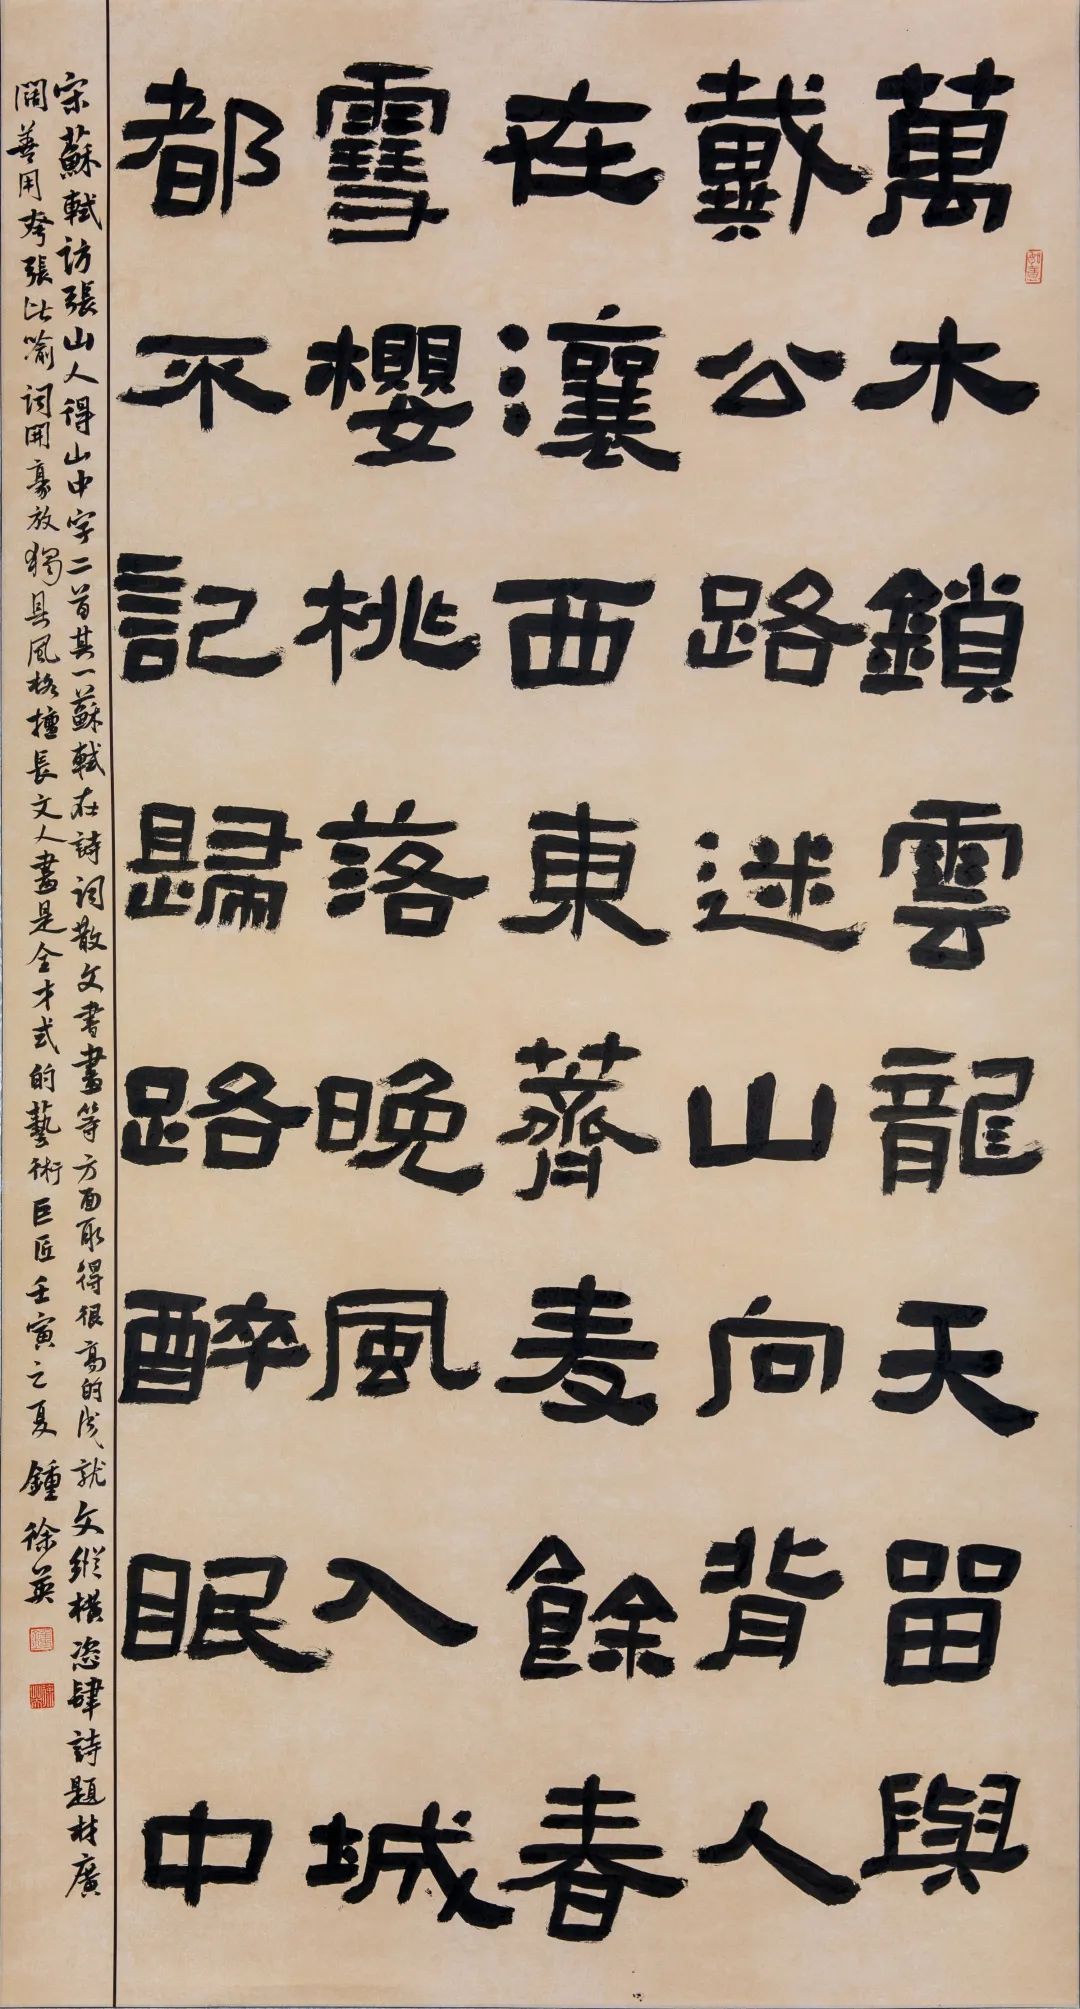 萬木鎖雲龍天留與
戴公路迷山向背人
在瀼西東薺麦餘春
雪櫻桃落晚風入城
都不記歸路醉眠中
宋蘇軾訪張山人得山中字二首其一蘇軾在詩詞散文書畫等方面取得很高的成就文縱横恣肆詩題材廣
闊善用夸張比喻詞開豪放獨具風格擅長文人畫是全才式的藝術巨匠壬寅之夏鍾徐英